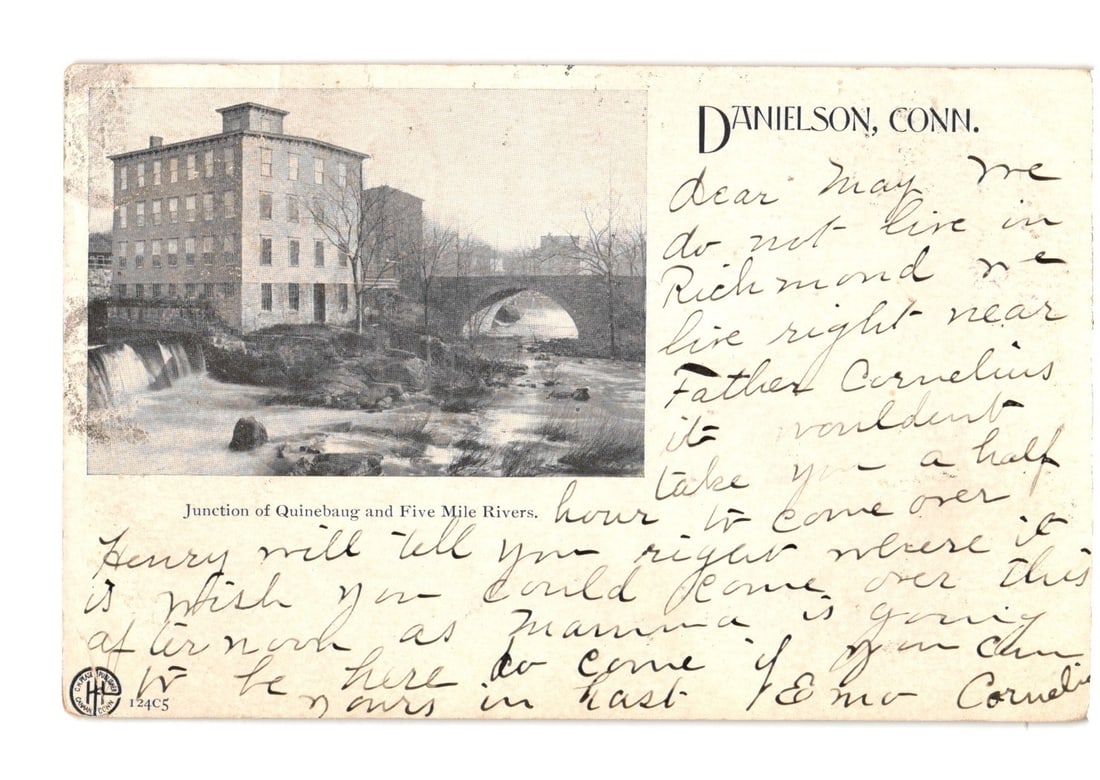 DANIELSON, CONN.
dear May we
do not live in
Richmond we
live right near
Father Cornelius
it wouldent
take you a half
Junction of Quinebaug and Five Mile Rivers.
hour to come over
Henry will tell you right where it
is wish you could come over this
afternoon as Mamma is going
to be here do come if you can
yours in hast Cornelius
124C5